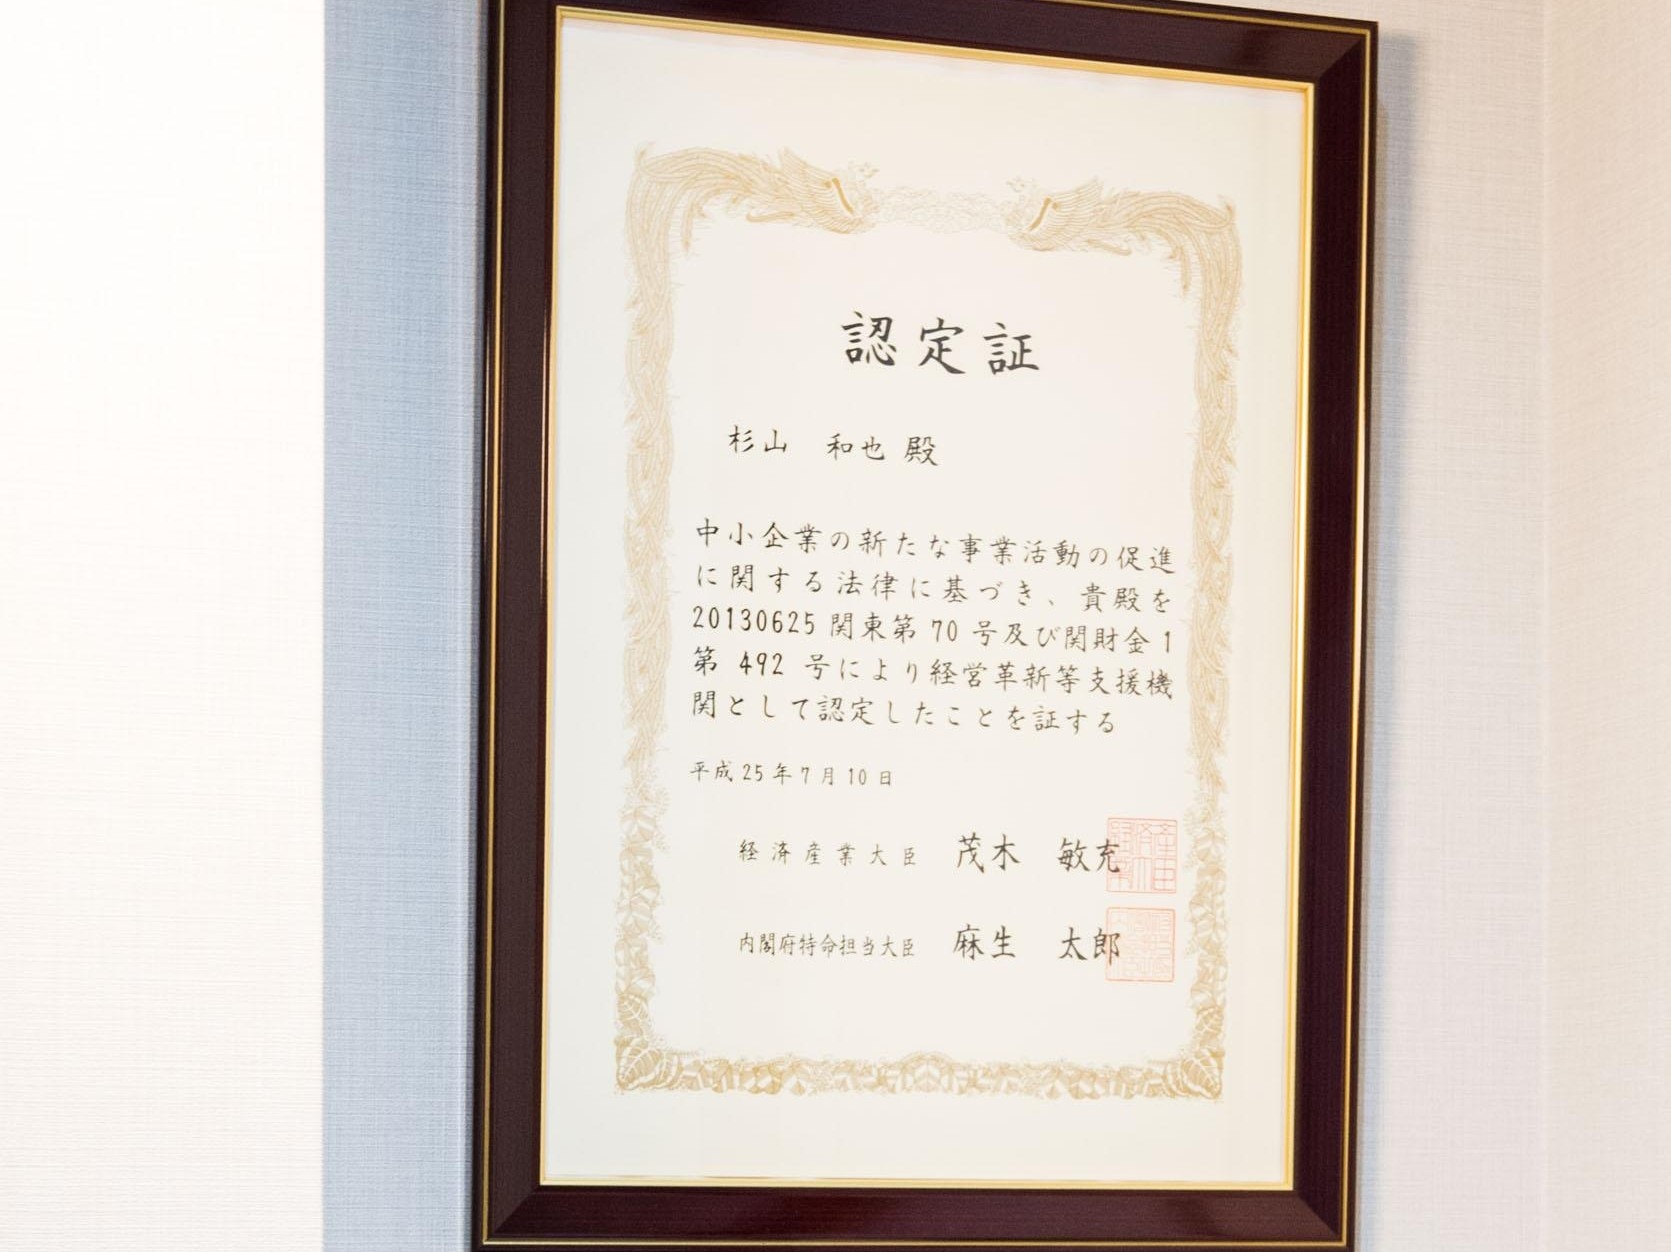 認定証
杉山 和也 殿
中小企業の新たな事業活動の促進
に関する法律に基づき、貴殿を
20130625関東第70号及び関財金1
第 492 号により経営革新等支援機
関として認定したことを証する
平成25年7月10日
経済産業大臣 茂木 敏充
内閣府特命担当大臣 麻生 太郎